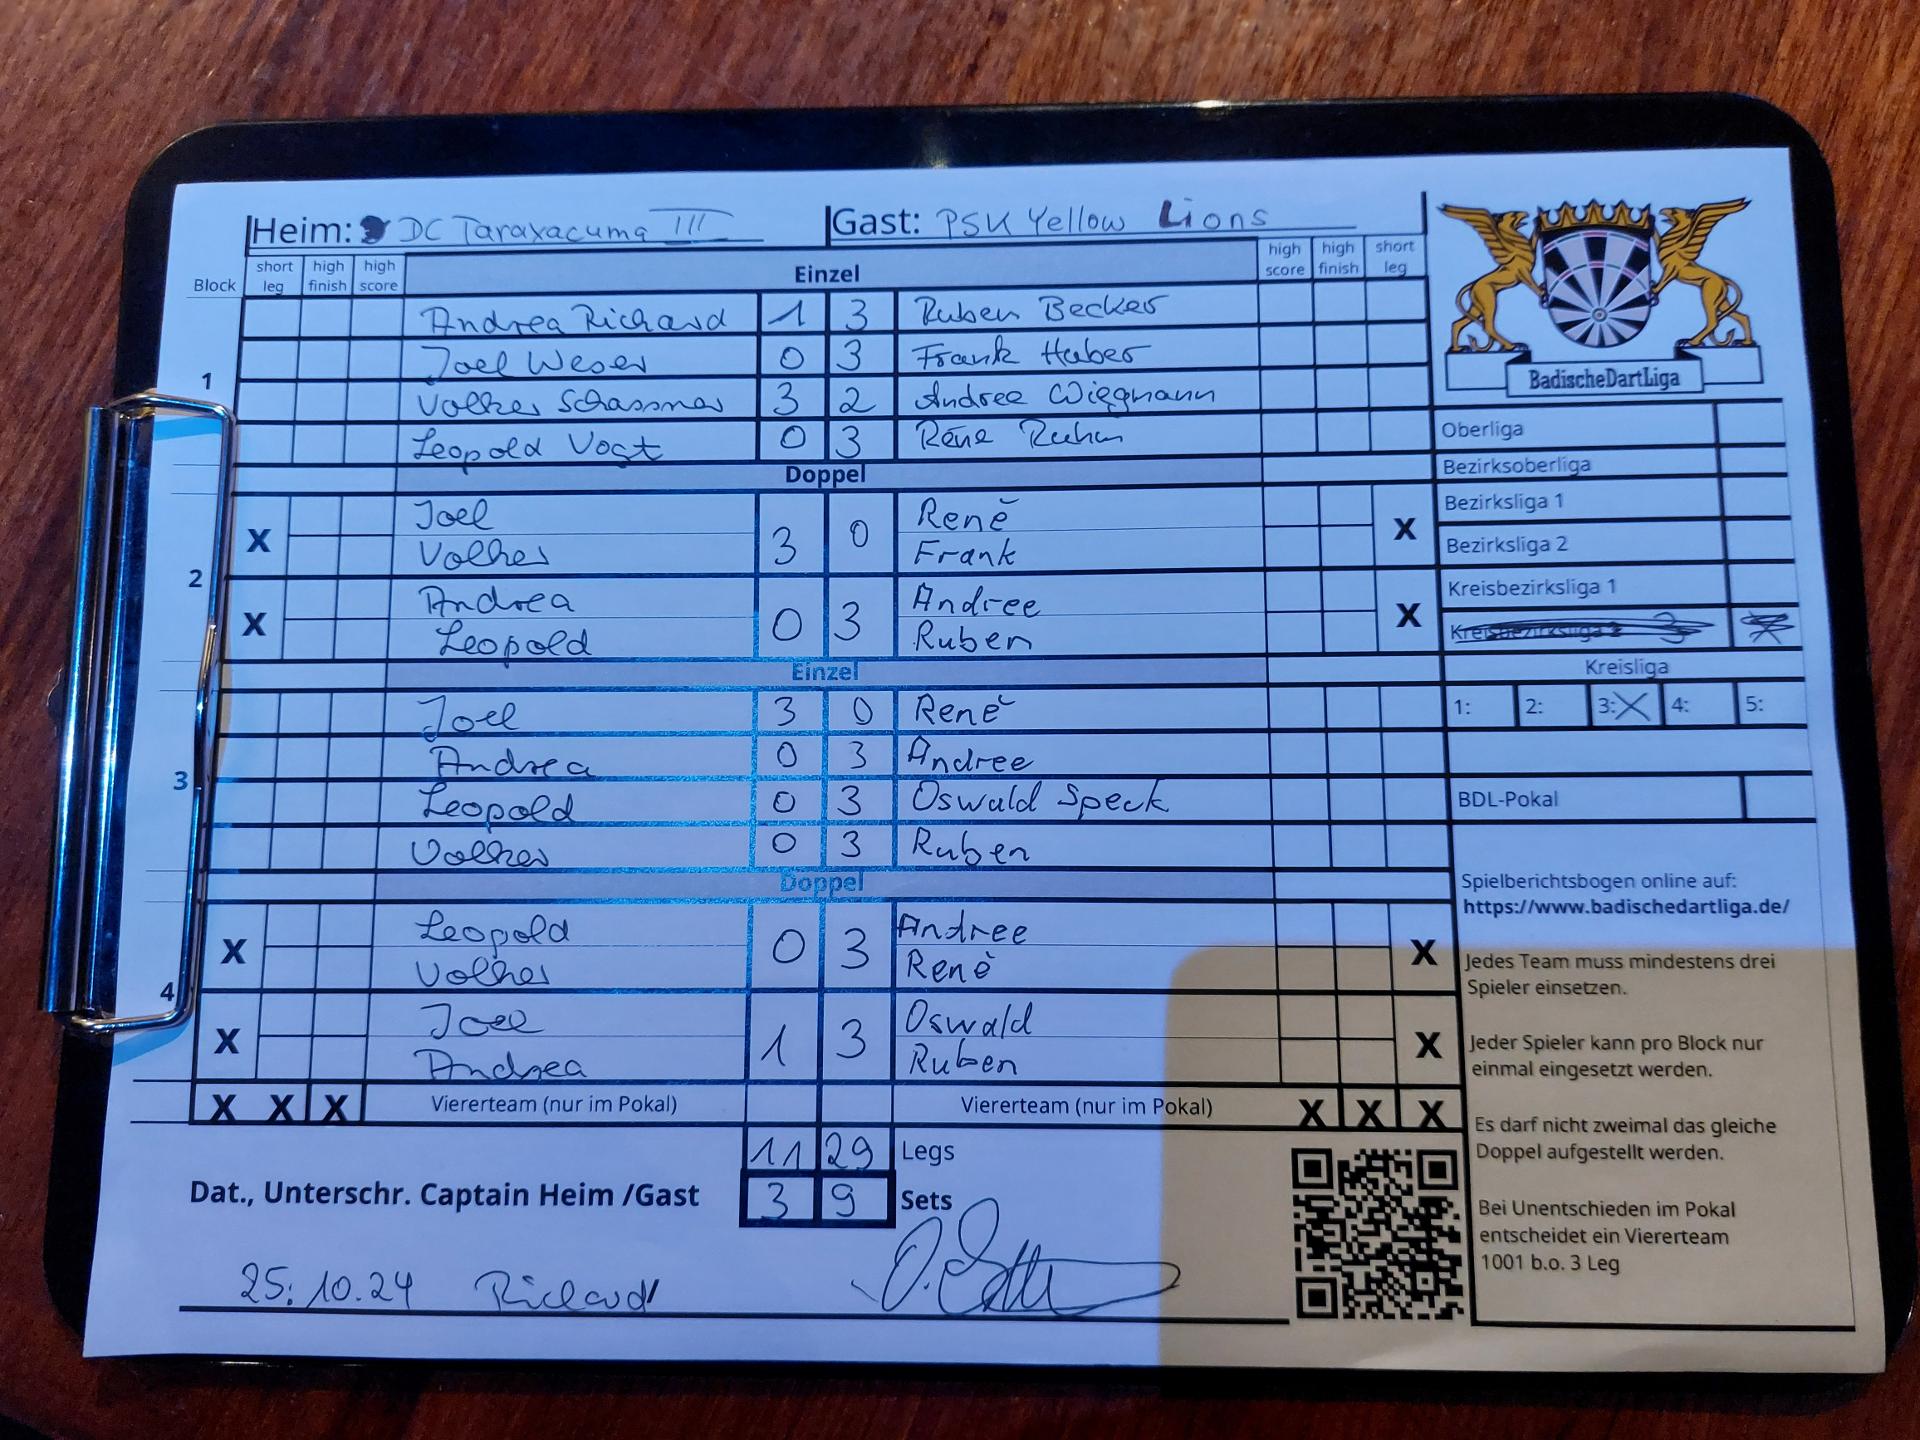 Heim: DC Taraxacuma III Gast: PSK Yellow Lions
Block short leg high finish high score Einzel high score high finish short leg
1
Andrea Richard 1 3 Ruben Becker
Joel Weser 0 3 Frank Huber
Volker Schassner 3 2 Andree Wiegmann
Leopold Vogt 0 3 Réne Ruhm
Doppel
2
X Joel 3 0 Renè X
Volker Frank
X Andrea 0 3 Andree X
Leopold Ruben
Einzel
3
Joel 3 0 Renè
Andrea 0 3 Andree
Leopold 0 3 Oswald Speck
Volker 0 3 Ruben
Doppel
4
X Leopold 0 3 Andree X
Volker Renè
X Joel 1 3 Oswald X
Andrea Ruben
X X X Viererteam (nur im Pokal) Viererteam (nur im Pokal) X X X
11 29 Legs
Dat., Unterschr. Captain Heim /Gast 3 9 Sets
25.10.24 Richard
BadischeDartLiga
Oberliga
Bezirksoberliga
Bezirksliga 1
Bezirksliga 2
Kreisbezirksliga 1
Kreisbezirksliga 2 3 X
Kreisliga
1: 2: 3: X 4: 5:
BDL-Pokal
Spielberichtsbogen online auf:
https://www.badischedartliga.de/
Jedes Team muss mindestens drei
Spieler einsetzen.
Jeder Spieler kann pro Block nur
einmal eingesetzt werden.
Es darf nicht zweimal das gleiche
Doppel aufgestellt werden.
Bei Unentschieden im Pokal
entscheidet ein Viererteam
1001 b.o. 3 Leg